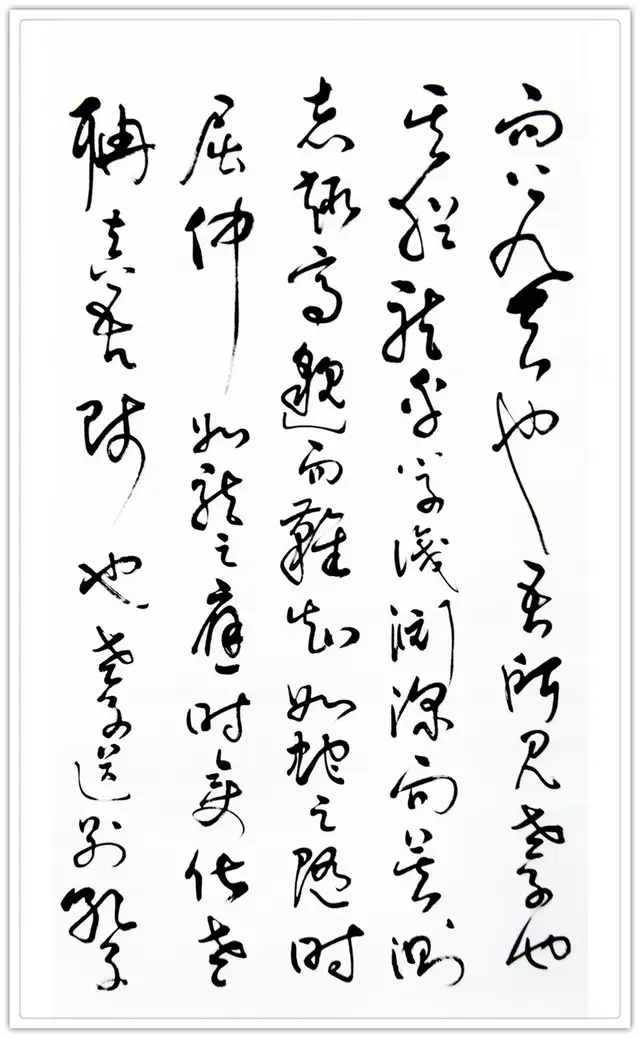 而上九天也吾所见老子也
其犹龙乎学识渊深而莫测
志趣高邈而難知如蛇之随时
屈伸如龙之應时变化老
聃真吾师也老子送别孔子